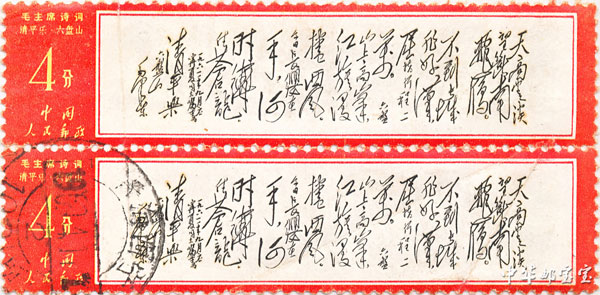 毛主席诗词
清平乐 六盘山
4分
中国
人民邮政
天高云淡
望断南
飞雁。
不到长城
非好汉
屈指行程二
万。六盘
山上高峰
红旗漫
卷西风
今日长缨在
手，何
时缚
住苍龙
一九六一年九月
清平乐
六盘山
毛泽东
毛主席诗词
清平乐 六盘山
4分
中国
人民邮政
天高云淡
望断南
飞雁。
不到长城
非好汉
屈指行程二
万。六盘
山上高峰
红旗漫
卷西风
今日长缨在
手，何
时缚
住苍龙
一九六一年九月
清平乐
毛泽东
中华邮宝宝